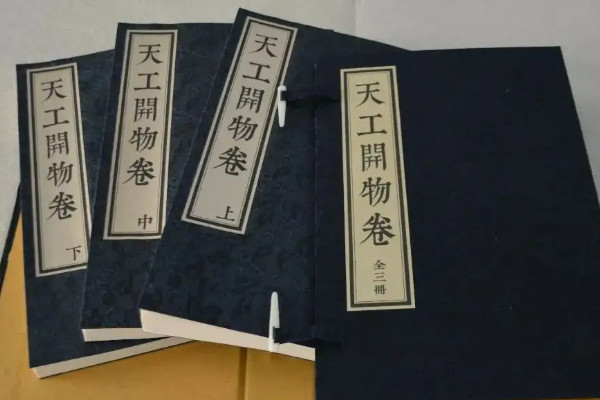 天工開物卷
下
天工開物卷
中
天工開物卷
上
天工開物卷
全三冊